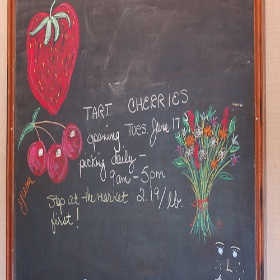 TART CHERRIES
opening Tues. June 17
picking daily –
9am – 5pm
Stop at the market 2.19/lb.
first!
yum